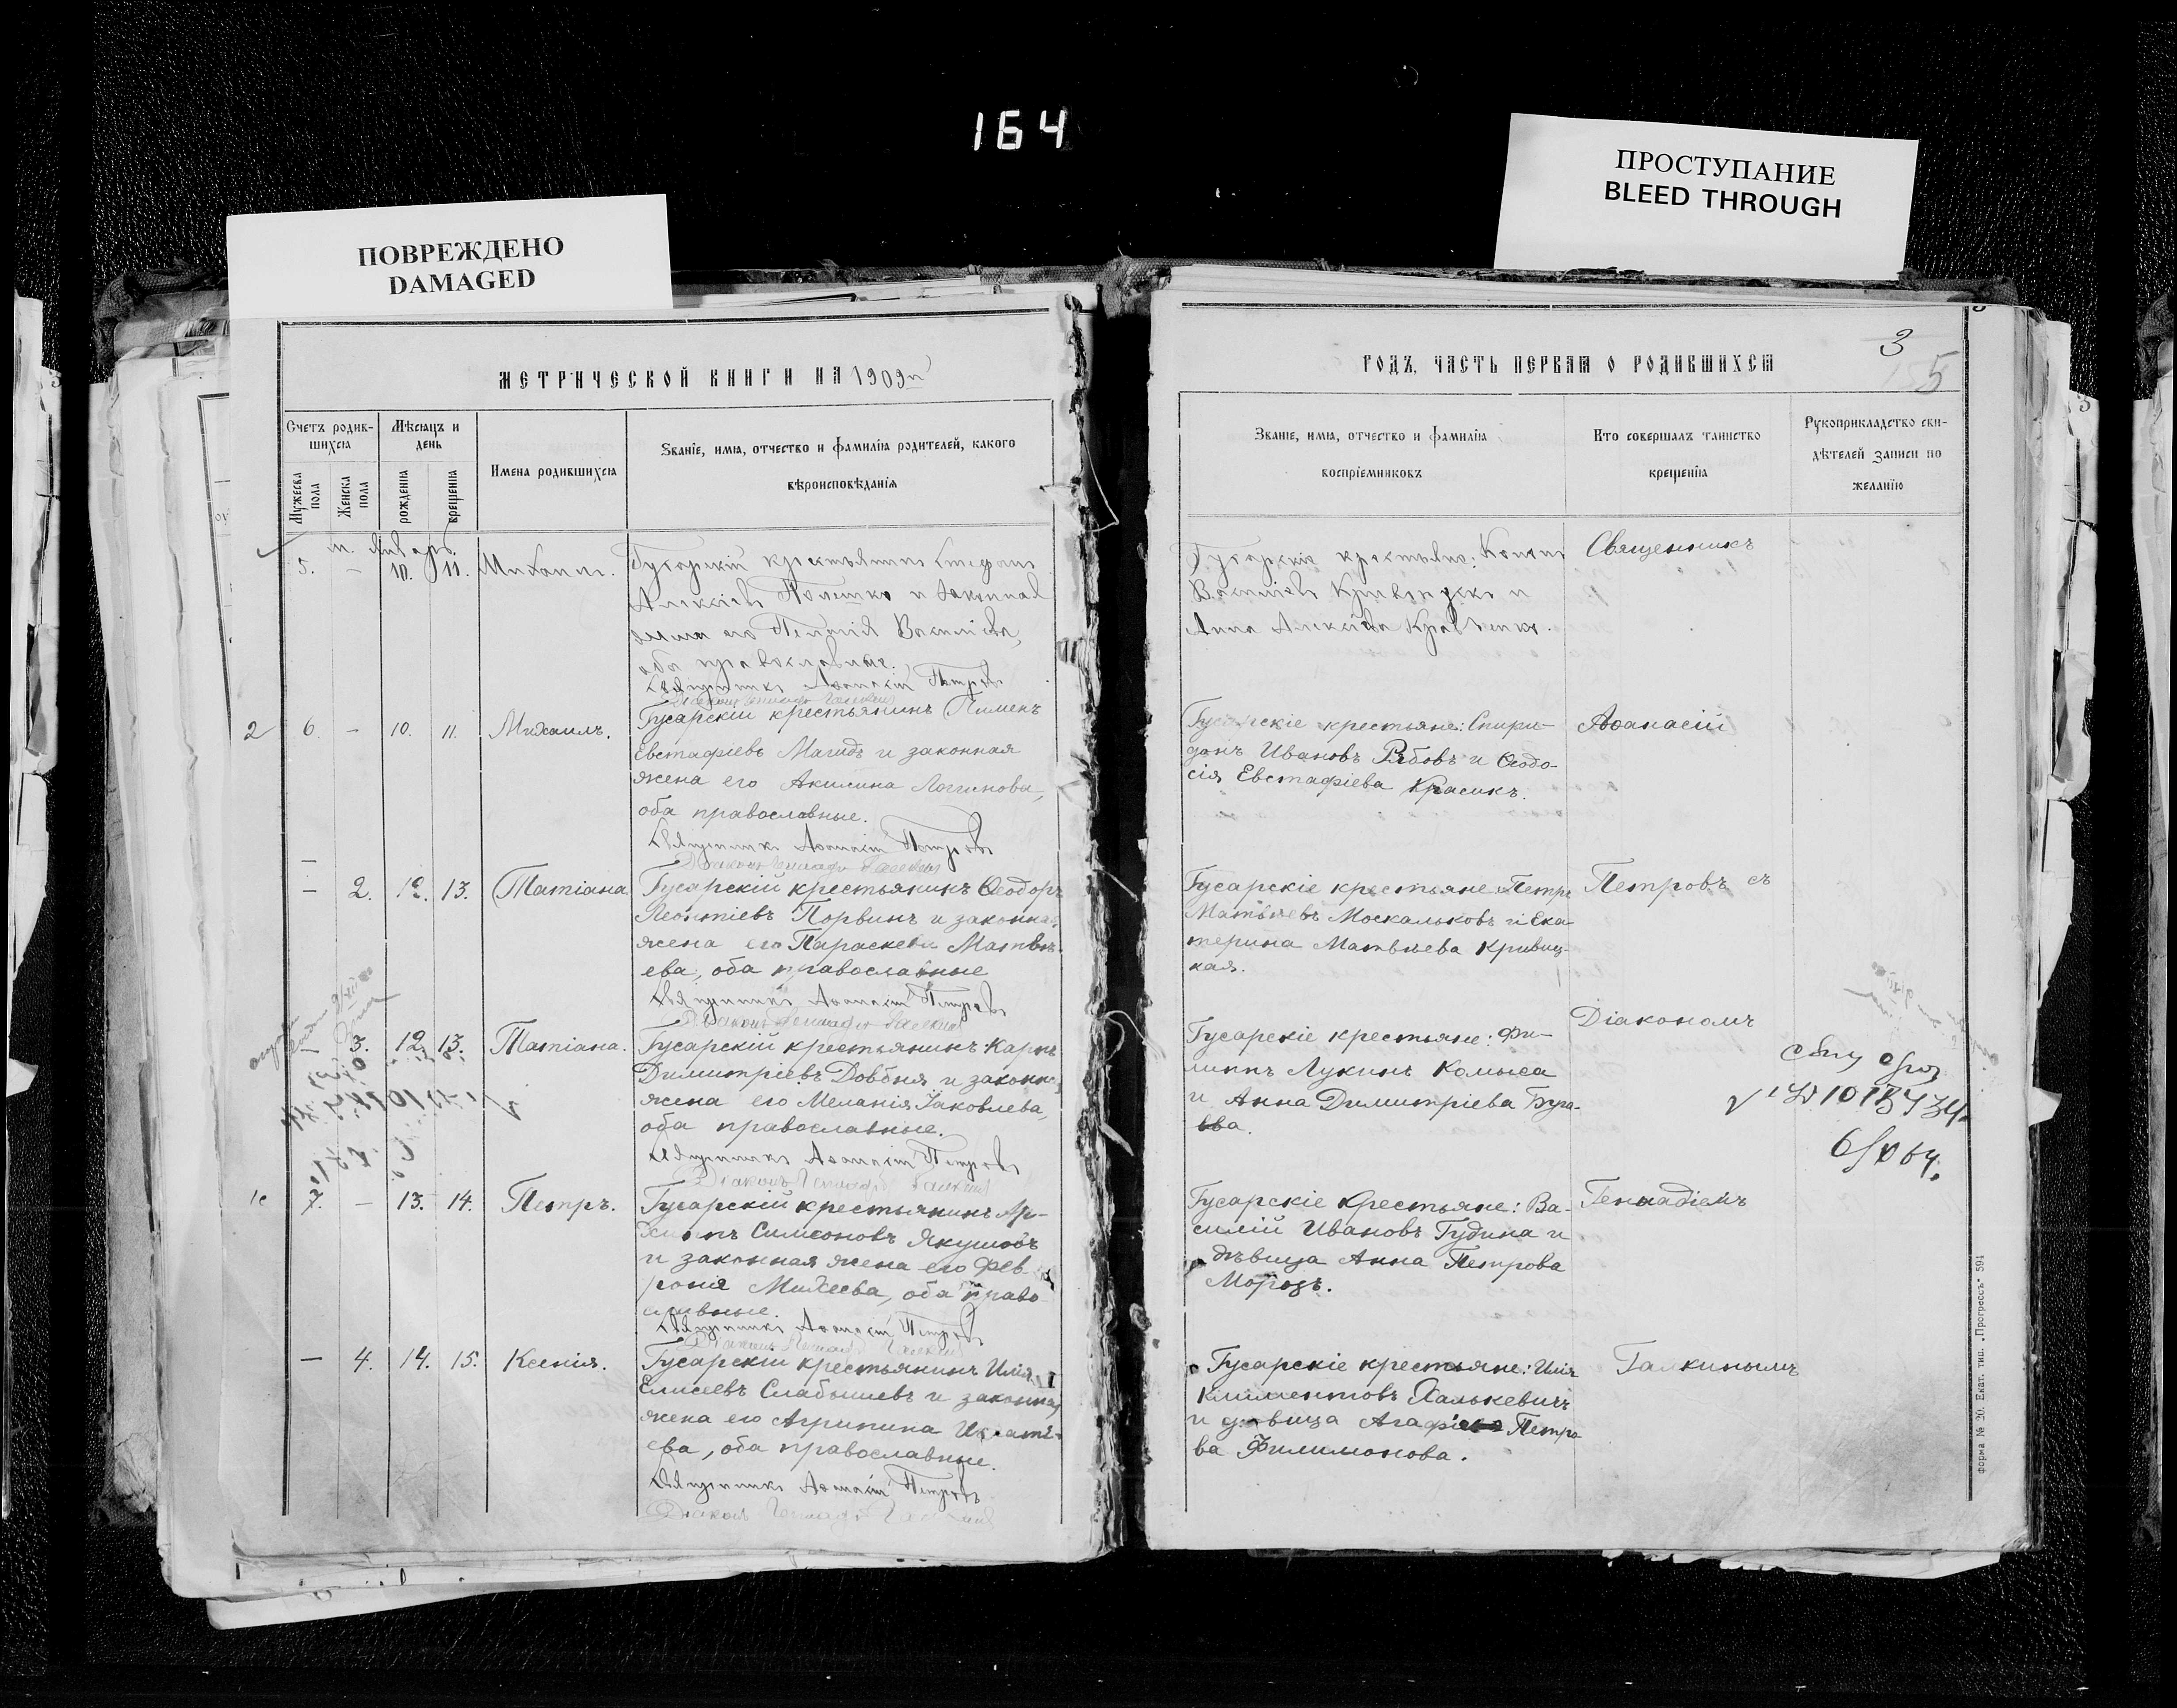 164
ПРОСТУПАНИЕ
BLEED THROUGH
ПОВРЕЖДЕНО
DAMAGED
МЕТРИЧЕСКОЙ КНИГИ НА 1909й
Счетъ родив-
шихся
Мѣсяцъ и
день
Мужеска
пола
Женска
пола
рожденія
крещенія
Имена родившихся
Званіе, имя, отчество и фамилія родителей, какого
вѣроисповѣданія
м. Январь.
5. – 10. 11. Михаилъ. Гусарскій крестьянинъ Стефанъ
Алексіевъ и законная
жена его Пелагія Василіева,
оба православные.
Священникъ Аѳанасій Петровъ
2 6. – 10. 11. Михаилъ. Гусарскій крестьянинъ Пименъ
Евстафіевъ Магидъ и законная
жена его Акилина Логгинова,
оба православные.
Священникъ Аѳанасій Петровъ
Діаконъ Геннадій Галкинъ
– 2. 12. 13. Татіана Гусарскій крестьянинъ Ѳеодоръ
Леонтіевъ Порвинъ и законная
жена его Параскева Матвѣ-
ева, оба православные
Священникъ Аѳанасій Петровъ
Діаконъ Геннадій Галкинъ
– 3. 12. 13. Татіана. Гусарскій крестьянинъ Карпъ
Димитріевъ Довбня и законная
жена его Меланія Іаковлева,
оба православные.
Священникъ Аѳанасій Петровъ
Діаконъ Геннадій Галкинъ
7. – 13. 14. Петръ. Гусарскій крестьянинъ Ар-
хипъ Симеоновъ Якушовъ
и законная жена его Фев-
ронія Михеева, оба право-
славные.
Священникъ Аѳанасій Петровъ
– 4. 14. 15. Ксенія. Гусарскій крестьянинъ Илія
Елисеевъ Слабышевъ и законная
жена его Агрипина
ева, оба православные.
Священникъ Аѳанасій Петровъ
Діаконъ Геннадій Галкинъ
3
5
ГОДЪ, ЧАСТЬ ПЕРВАЯ О РОДИВШИХСЯ
Званіе, имя, отчество и фамилія
воспріемниковъ
Кто совершалъ таинство
крещенія
Рукоприкладство сви-
дѣтелей записи по
желанію
Гусарскіе крестьяне:
Василіевъ и
Анна Алексіева Кравченко.
Священникъ
Гусарскіе крестьяне: Спири-
донъ Ивановъ Рябовъ и Ѳеодо-
сія Евстафіева Красикъ.
Аѳанасій
Гусарскіе крестьяне Петръ
Матвѣевъ Москальковъ и Ека-
терина Матвѣева Кривиц-
кая.
Петровъ съ
Гусарскіе крестьяне: Фи-
липпъ Лукинъ Комыса
и Анна Димитріева
Діакономъ
Гусарскіе крестьяне: Ва-
силій Ивановъ Гудина и
дѣвица Анна Петрова
Морозъ.
Геннадіемъ
Гусарскіе крестьяне: Илія
Климентовъ Халькевичъ
и дѣвица Агафія Петро-
ва Филимонова.
Галкинымъ
Форма № 20. Екат. тип. „Прогрессъ" 591